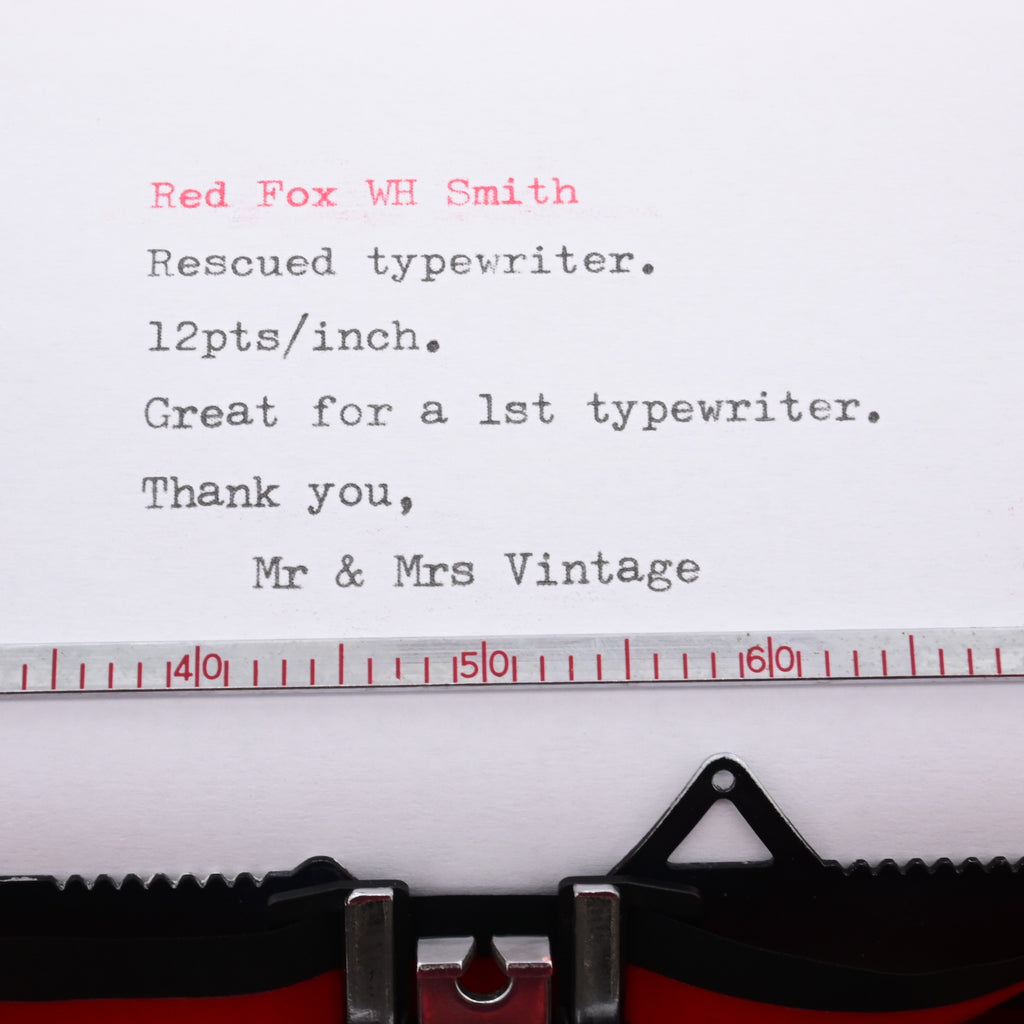 Red Fox WH Smith
Rescued typewriter.
12pts/inch.
Great for a 1st typewriter.
Thank you,
Mr & Mrs Vintage
40 50 60